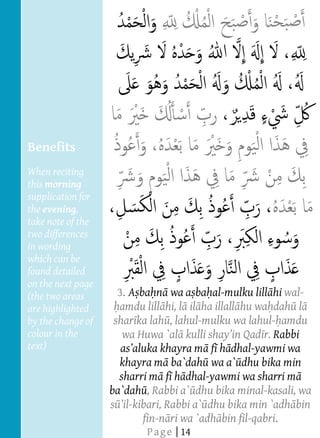 أَصْبَحْنَا وَأَصْبَحَ الْمُلْكُ لِلَّهِ وَالْحَمْدُ
لِلَّهِ، لَا إِلَهَ إِلَّا اللهُ وَحْدَهُ لَا شَرِيكَ
لَهُ، لَهُ الْمُلْكُ وَلَهُ الْحَمْدُ وَهُوَ عَلَى
كُلِّ شَيْءٍ قَدِيرٌ، ربِّ أَسْأَلُكَ خَيْرَ مَا
فِي هَذَا الْيَومِ وَخَيْرَ مَا بَعْدَهُ، وَأَعُوذُ
بِكَ مِنْ شَرِّ مَا فِي هَذَا الْيَومِ وَشَرِّ
مَا بَعْدَهُ، رَبِّ أَعُوذُ بِكَ مِنَ الْكَسَلِ،
وَسُوءِ الْكِبَرِ، رَبِّ أَعُوذُ بِكَ مِنْ
عَذَابٍ فِي النَّارِ وَعَذَابٍ فِي الْقَبْرِ
Benefits
When reciting
this morning
supplication for
the evening,
take note of the
two differences
in wording
which can be
found detailed
on the next page
(the two areas
are highlighted
by the change of
colour in the
text)
3. Aṣbaḥnā wa aṣbaḥal-mulku lillāhi wal-
ḥamdu lillāhi, lā ilāha illallāhu waḥdahū lā
sharīka lahū, lahul-mulku wa lahul-ḥamdu
wa Huwa `alā kulli shay'in Qadīr. Rabbi
as'aluka khayra mā fī hādhal-yawmi wa
khayra mā ba`dahū wa a`ūdhu bika min
sharri mā fī hādhal-yawmi wa sharri mā
ba`dahū, Rabbi a`ūdhu bika minal-kasali, wa
sū'il-kibari, Rabbi a`ūdhu bika min `adhābin
fin-nāri wa `adhābin fil-qabri.
Page | 14